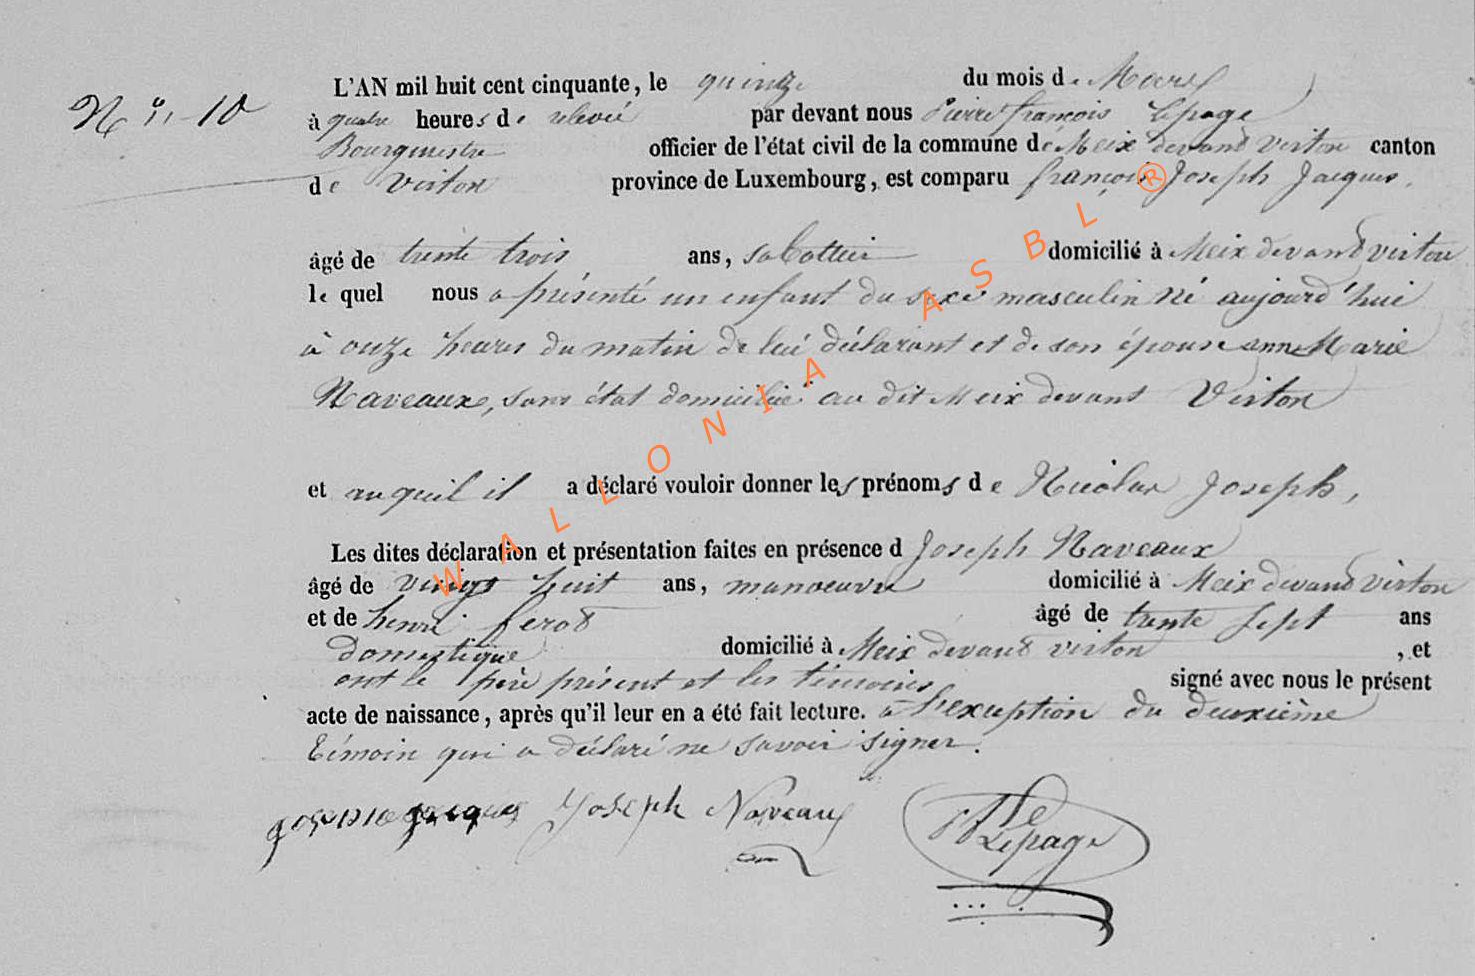 N° 10
L'AN mil huit cent cinquante, le quinze du mois de Mars
à quatre heures de relevée par devant nous Pierre françois Lepage
Bourgmestre officier de l'état civil de la commune de Meix devand virton canton
de Virton province de Luxembourg, est comparu françois Joseph Jacques,
âgé de trente trois ans, sabottier domicilié à Meix devand virton
le quel nous a présenté un enfant du sexe masculin né aujourd'hui
à onze heures du matin de lui déclarant et de son épouse anne Marie
Naveaux, sans état domicilié au dit Meix devant Virton
et auquel il a déclaré vouloir donner les prénoms de Nicolas Joseph,
Les dites déclaration et présentation faites en présence d Joseph Naveaux
âgé de vingt huit ans, manoeuvre domicilié à Meix devand virton
et de henri âgé de trente sept ans
domestique domicilié à Meix devand virton , et
ont le père présent et les témoins signé avec nous le présent
acte de naissance, après qu'il leur en a été fait lecture. à l'exception du deuxième
témoin qui a déclaré ne savoir signer.
jacques Joseph Naveaux Lepage
WALLONIA ASBL ®